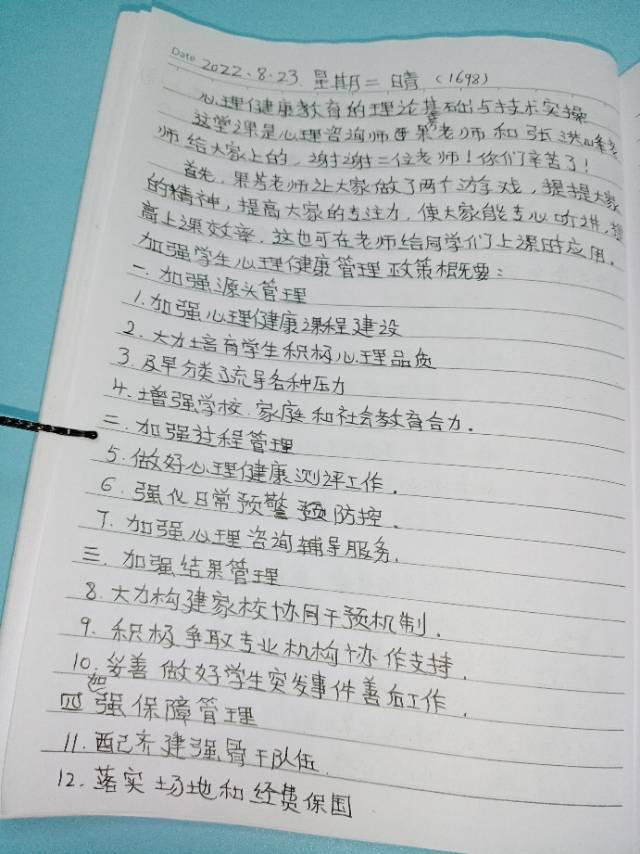 Date 2022.8.23 星期二 晴 (1698)
心理健康教育的理论基础与技术实操
这堂课是心理咨询师 老师和张洪
师给大家上的,谢谢二位老师!你们辛苦了!
首先,果 老师让大家做了两个游戏,提提大家
的精神,提高大家的专注力,使大家能专心听讲,提
高上课效率.这也可在老师给同学们上课时应用.
加强学生心理健康管理政策概要:
一.加强源头管理
1.加强心理健康课程建设
2.大力培育学生积极心理品质
3.及早分类疏导各种压力
4.增强学校.家庭和社会教育合力.
二.加强过程管理
5.做好心理健康测评工作.
6.强化日常预警 防控.
7.加强心理咨询辅导服务.
三.加强结果管理
8.大力构建家校协同干预机制.
9.积极争取专业机构协作支持.
10.妥善做好学生突发事件善后工作.
四加强保障管理
11.配齐建强骨干队伍.
12.落实场地和经费保国